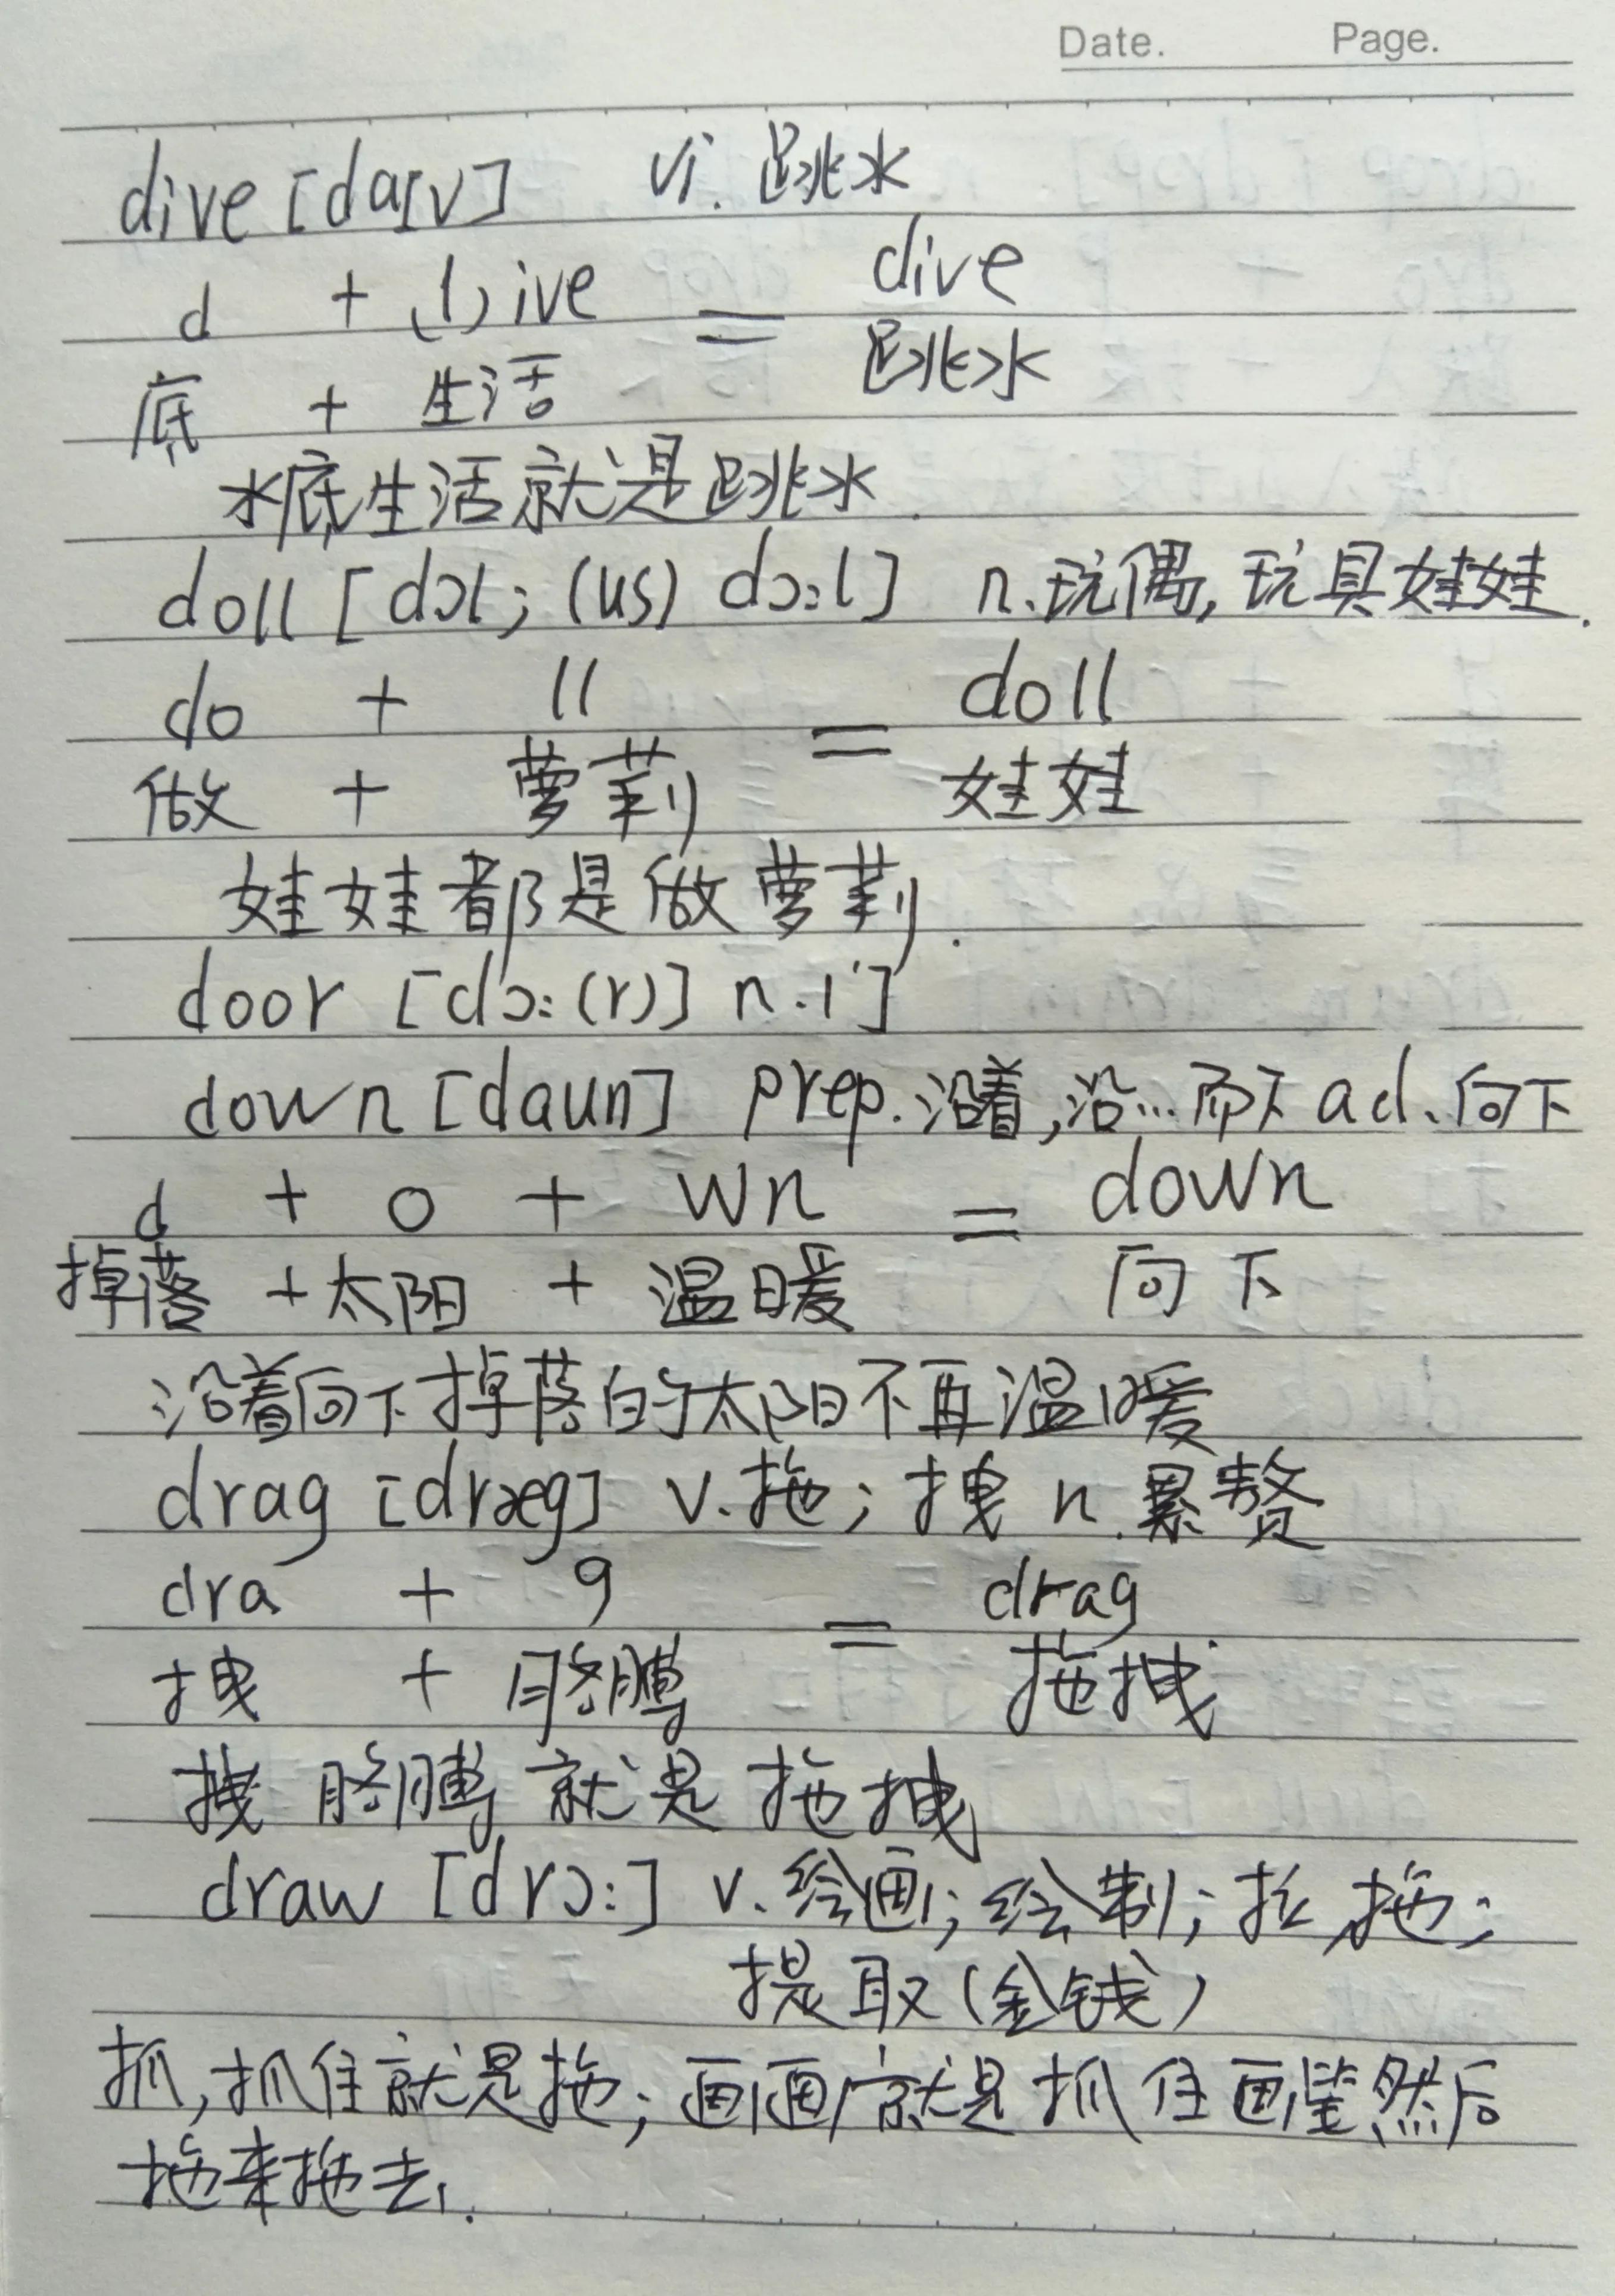 Date. Page.
dive [daɪv] vi. 跳水
d + (l)ive = dive
底 + 生活 跳水
水底生活就是跳水.
doll [dɔl; (us) dɔ:l] n.玩偶, 玩具娃娃.
do + ll = doll
做 + 萝莉 娃娃
娃娃都是做萝莉.
door [dɔ:(r)] n.门
down [daun] prep.沿着,沿…而下 ad.向下
d + o + wn = down
掉落 + 太阳 + 温暖 向下
沿着向下掉落的太阳不再温暖
drag [dræg] v.拖; 拽 n.累赘
dra + g = drag
拽 + 胳膊 拖拽
拽胳膊就是拖拽
draw [drɔ:] v.绘画; 绘制; 拉,拖;
提取(金钱)
抓,抓住就是拖; 画画就是抓住画笔然后
拖来拖去.